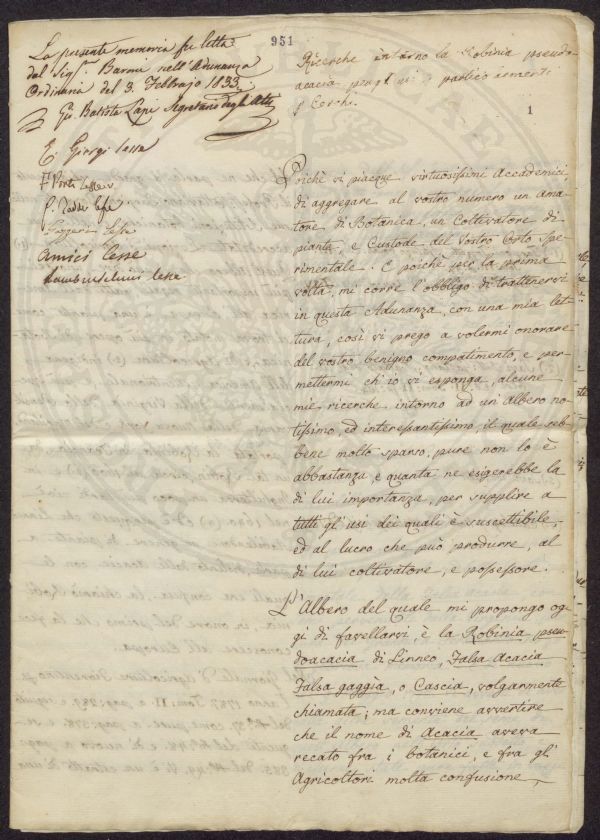 951
1
La presente memoria fu letta
dal Sigr. Barmi nell'Adunanza
Ordinaria del 3. Febbrajo 1833.
Gio. Batista Lapi Segretario degli Atti
E. Giorgi lesse
P. Taddi lesse
Gazzeri lesse
Amici lesse
lesse
Ricerche intorno la Robinia pseudo
acacia
Poichè vi piacque virtuosissimi Accademici
di aggregare al vostro numero un Ama-
tore di Botanica, un Coltivatore di
piante, e Custode del Vostro Orto spe-
rimentale. E poichè per la prima
volta, mi corre l'obbligo di trattenervi
in questa Adunanza, con una mia let-
tura, così vi prego a volermi onorare
del vostro benigno compatimento, e per-
mettermi ch'io vi esponga, alcune
mie ricerche intorno ad un'Albero no-
tissimo, ed interessantissimo, il quale seb-
bene molto sparso, pure non lo è
abbastanza, e quanta ne esigerebbe la
di lui importanza, per supplire a
tutti gl'usi dei quali è suscettibile,
ed al lucro che può produrre, al
di lui coltivatore, e possessore.
L'Albero del quale mi propongo og-
gi di favellarvi, è la Robinia pseu-
doacacia di Linneo, Falsa Acacia
Falsa gaggia, o Cascia, volgarmente
chiamata; ma conviene avvertire
che il nome di Acacia aveva
recato fra i botanici, e fra gl'
Agricoltori molta confusione,